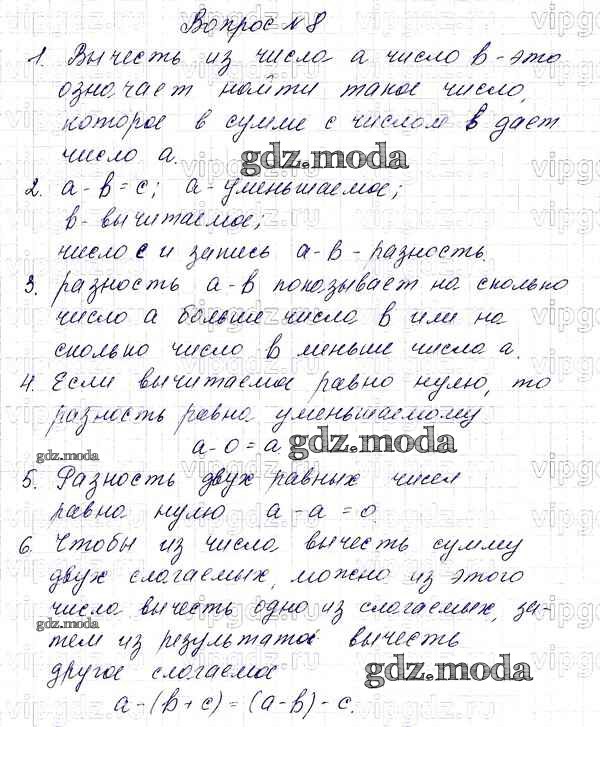 Вопрос №8
1. Вычесть из числа a число b - это
означает найти такое число,
которое в сумме с числом b дает
число a.
gdz.moda
2. a - b = c; a - уменьшаемое;
b - вычитаемое;
число c и запись a - b - разность.
3. разность a - b показывает на сколько
число a больше числа b или на
сколько число b меньше числа a.
4. Если вычитаемое равно нулю, то
разность равна уменьшаемому
a - 0 = a
gdz.moda
gdz.moda
5. Разность двух равных чисел
равна нулю a - a = 0.
6. Чтобы из числа вычесть сумму
двух слагаемых, можно из этого
числа вычесть одно из слагаемых, за-
gdz.moda
тем из результата вычесть
другое слагаемое
gdz.moda
a - (b + c) = (a - b) - c.